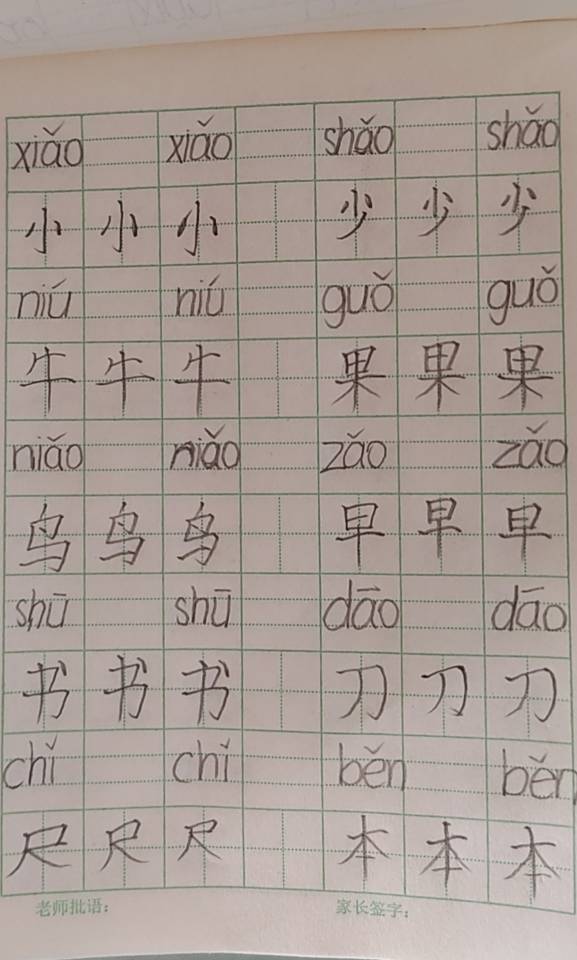 xiǎo xiǎo shǎo shǎo
小 小 小 少 少 少
niú niú guǒ guǒ
牛 牛 牛 果 果 果
niǎo niǎo zǎo zǎo
鸟 鸟 鸟 早 早 早
shū shū dāo dāo
书 书 书 刀 刀 刀
chǐ chǐ běn běn
尺 尺 尺 本 本 本
老师批语: 家长签字: